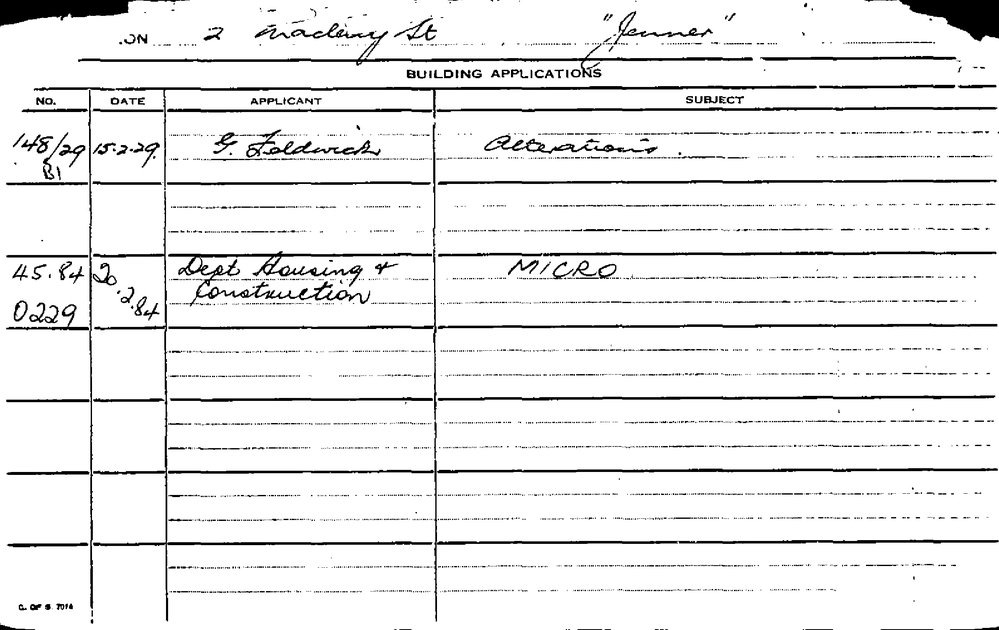 .ON 2 Macleay St "Jenner"
BUILDING APPLICATIONS
NO. DATE APPLICANT SUBJECT
148/29 15.2.29. G. Foldwich Alterations.
B1
45.84 20.2.84 Dept Housing + MICRO
0229 Construction
C. OF S. 7014